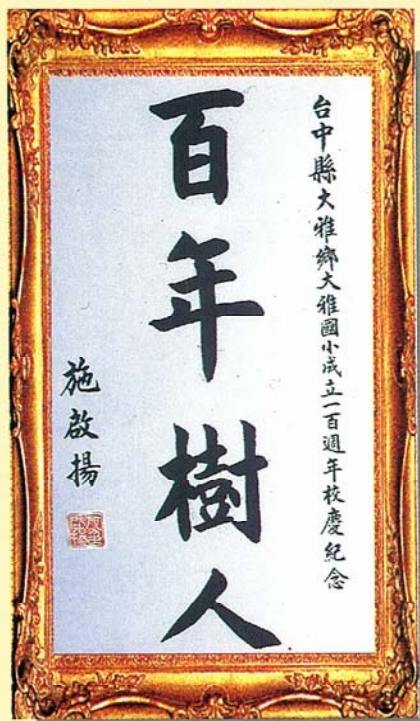 台中縣大雅鄉大雅國小成立一百週年校慶紀念
百年樹人
施啟揚